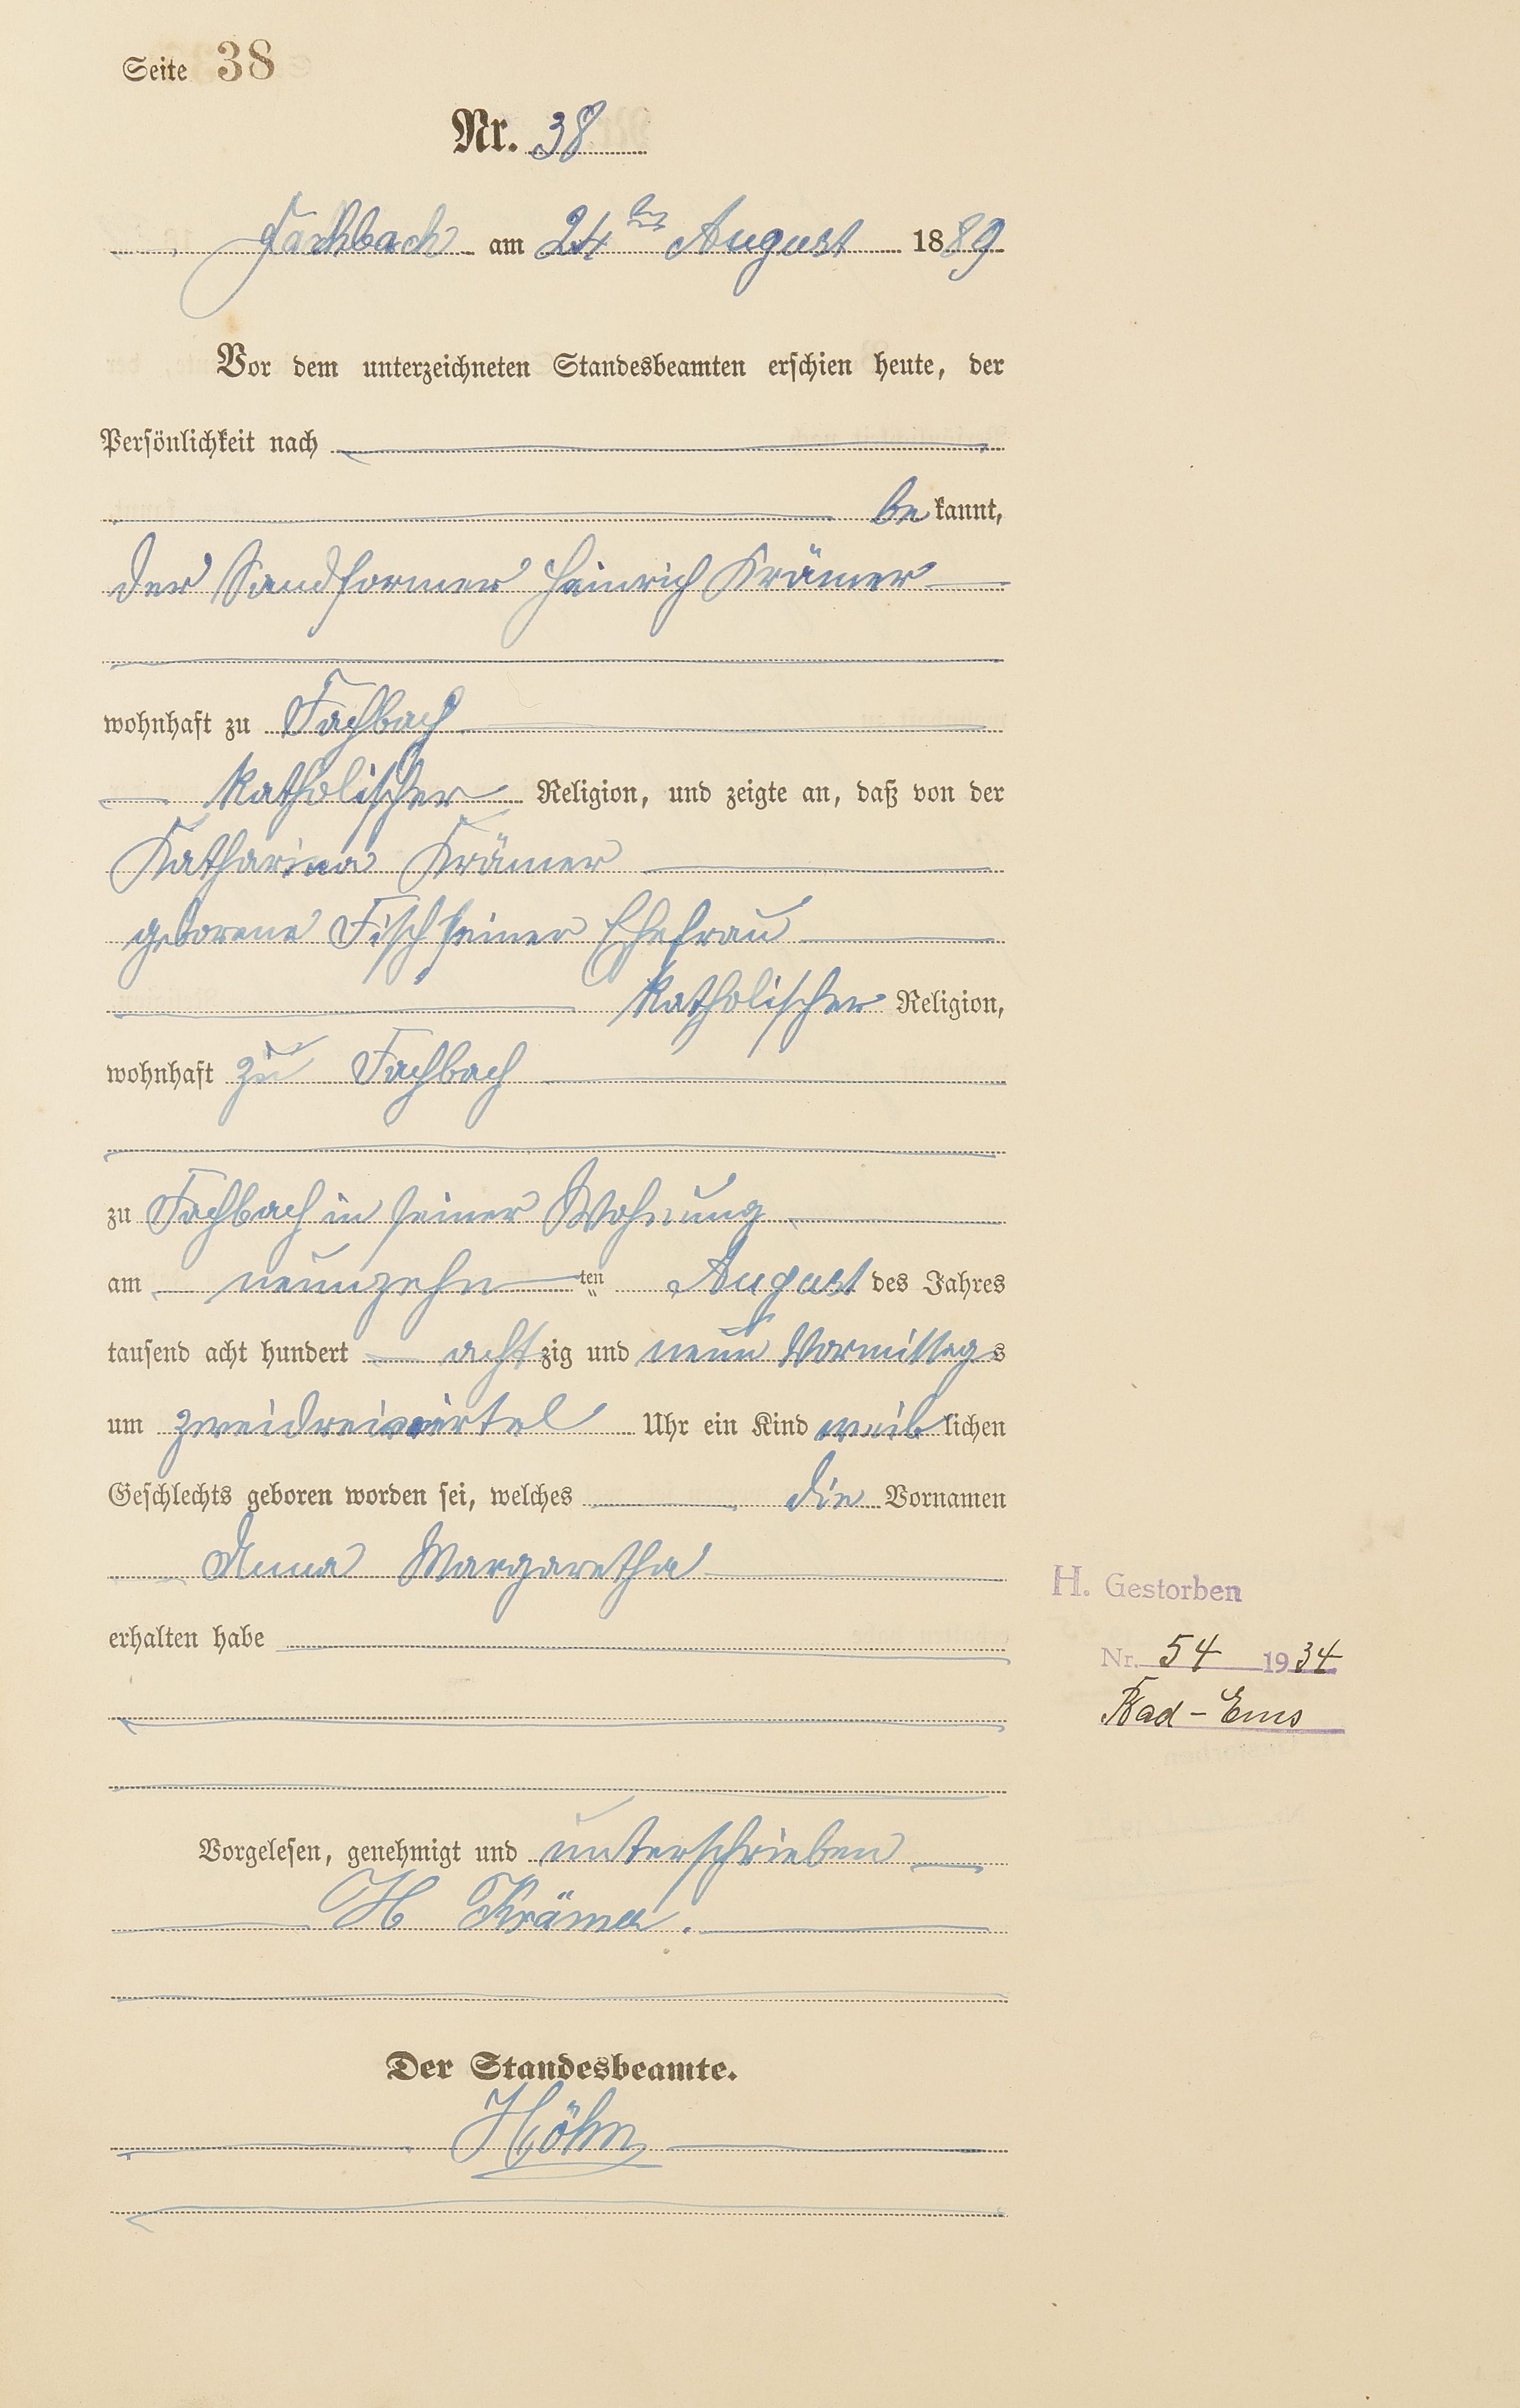 Seite 38
Nr. 38
Fachbach am 24ten August 1889
Vor dem unterzeichneten Standesbeamten erschien heute, der
Persönlichkeit nach
bekannt,
der Sandformer Heinrich Krämer
wohnhaft zu Fachbach
katholischer Religion, und zeigte an, daß von der
Katharina Krämer
geborene Fisch seiner Ehefrau
katholischer Religion,
wohnhaft zu Fachbach
zu Fachbach in seiner Wohnung
am neunzehn ten August des Jahres
tausend acht hundert achtzig und neun Vormittags
um zweidreiviertel Uhr ein Kind weiblichen
Geschlechts geboren worden sei, welches die Vornamen
Anna Margaretha
erhalten habe
H. Gestorben
Nr. 54 1934
Bad-Ems
Vorgelesen, genehmigt und unterschrieben
H Krämer.
Der Standesbeamte.
Höhn